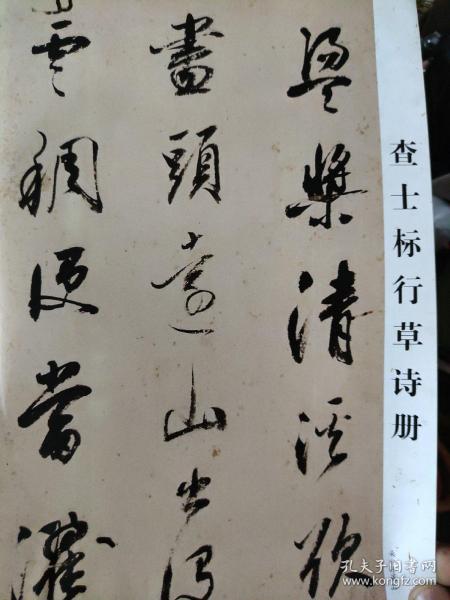 查士标行草诗册
盪槳清溪欲
盡頭遠山出沒
雲稠便當濯
孔夫子旧书网
www.kongfz.com